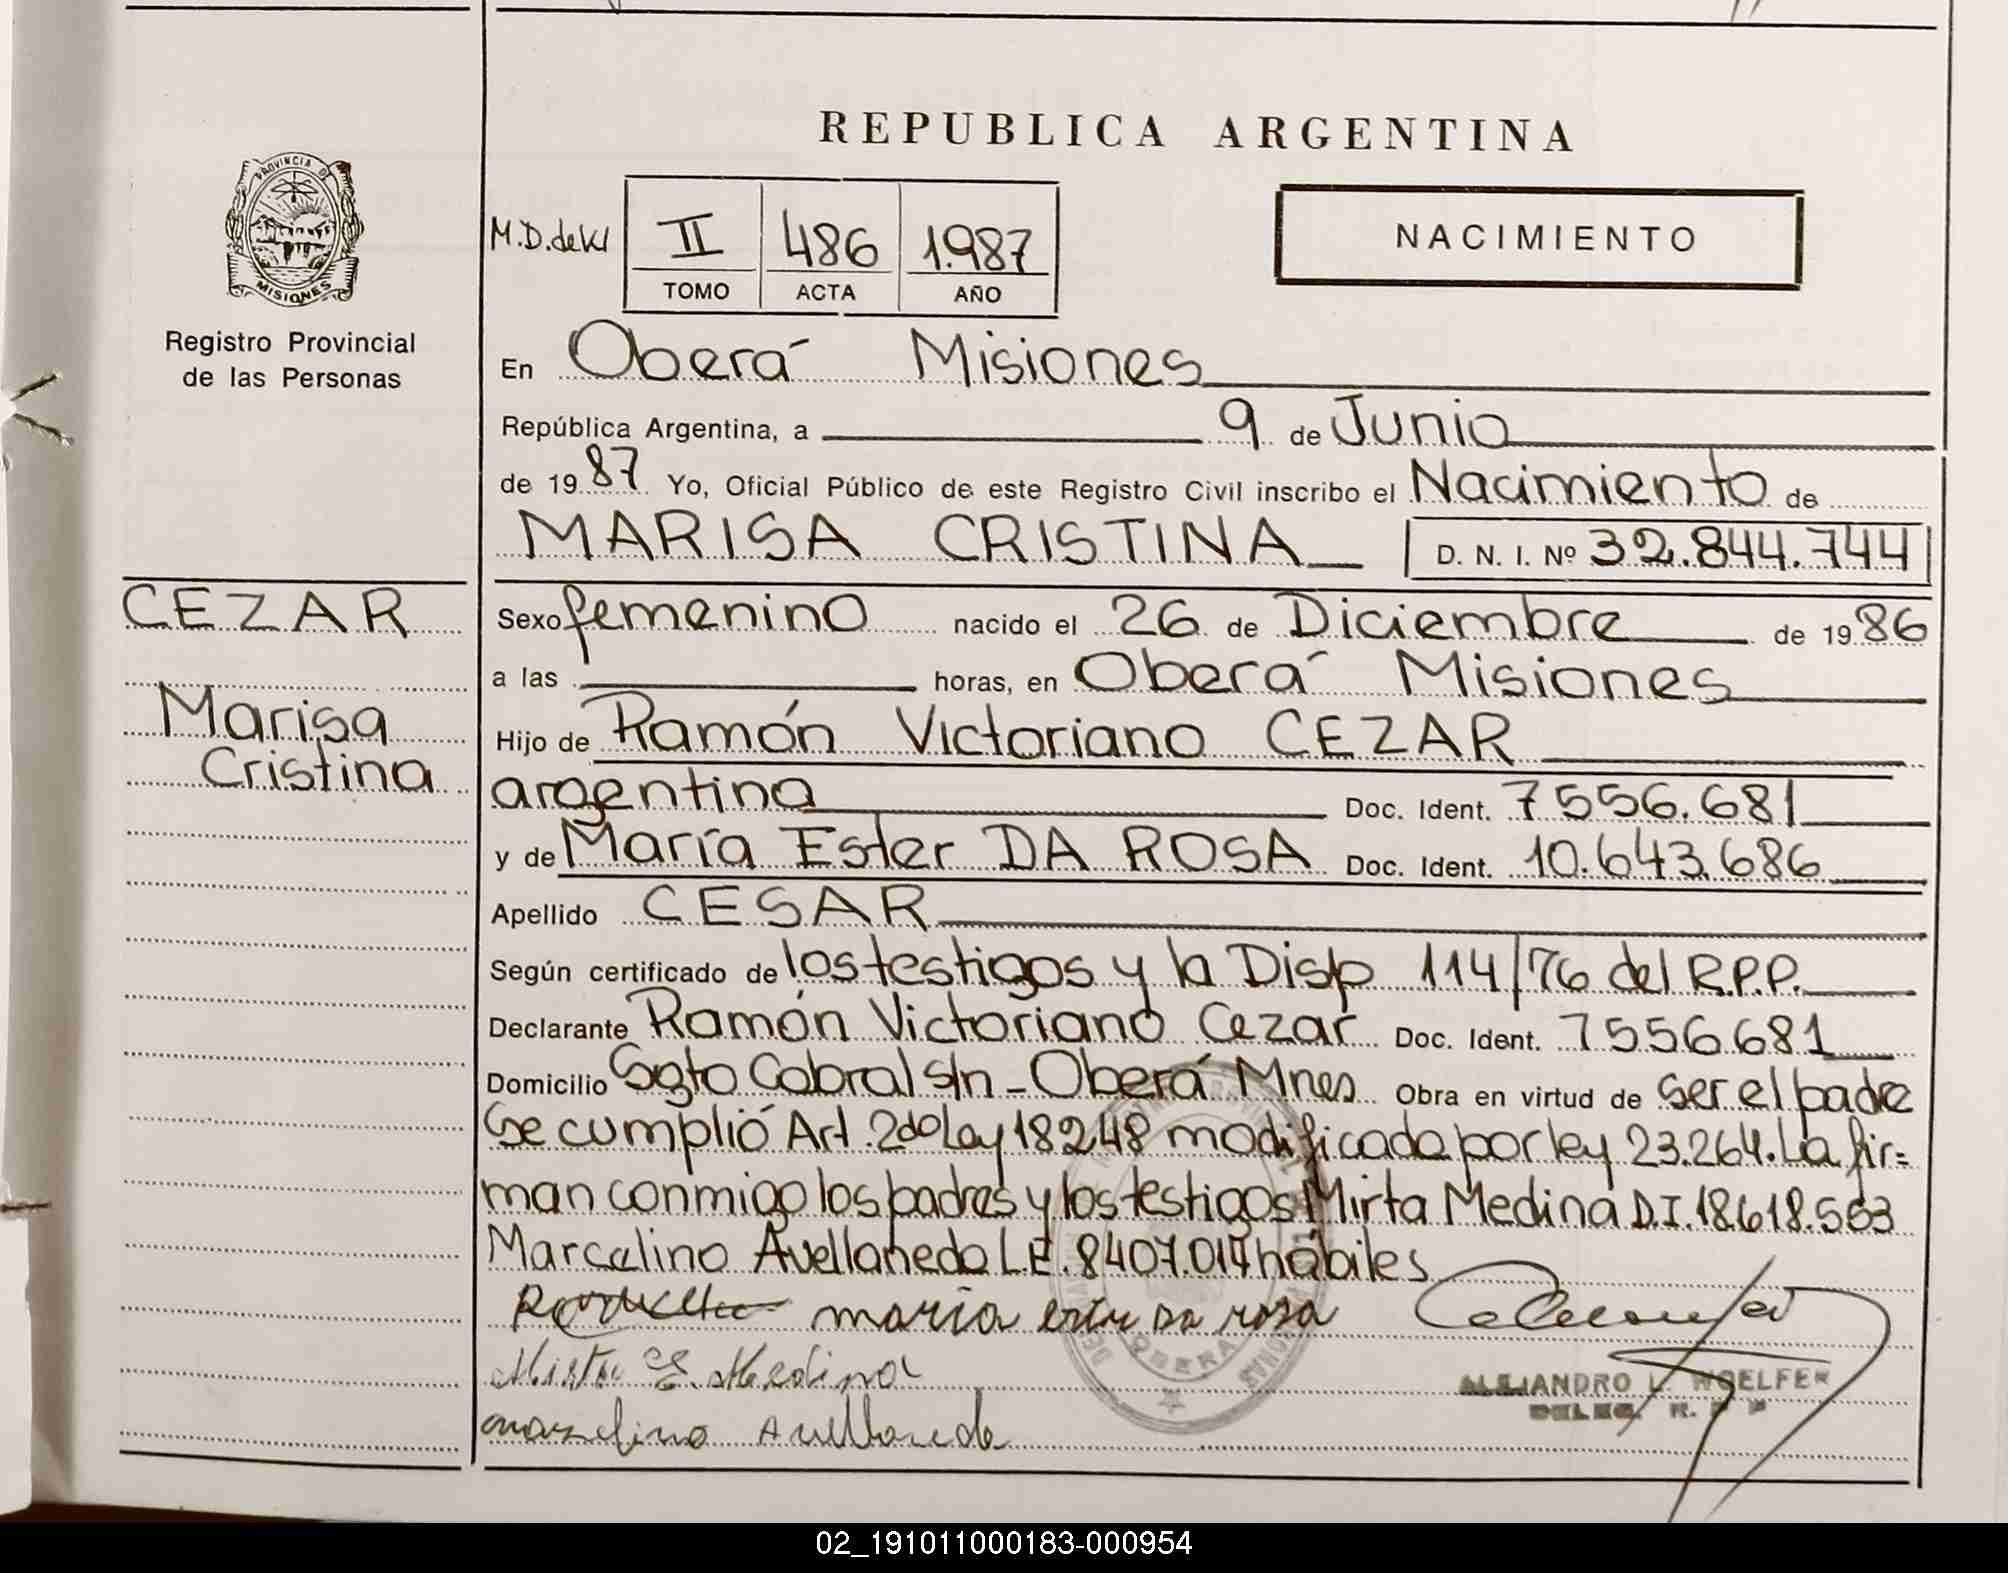 REPUBLICA ARGENTINA
PROVINCIA DE
MISIONES
Registro Provincial
de las Personas
M.D.
II 486 1.987
TOMO ACTA AÑO
NACIMIENTO
En Oberá Misiones
República Argentina, a 9 de Junio
de 1987 Yo, Oficial Público de este Registro Civil inscribo el Nacimiento de
MARISA CRISTINA D. N. I. Nº 32.844.744
CEZAR
Marisa
Cristina
Sexo femenino nacido el 26 de Diciembre de 1986
a las horas, en Oberá Misiones
Hijo de Ramón Victoriano CEZAR
argentina Doc. Ident. 7556.681
y de María Ester DA ROSA Doc. Ident. 10.643.686
Apellido CESAR
Según certificado de los testigos y la Disp 114/76 del R.P.P.
Declarante Ramón Victoriano Cezar Doc. Ident. 7556.681
Domicilio Sgto Cabral s/n - Oberá Mnes Obra en virtud de ser el padre
Se cumplió Art. 2do Ley 18248 modificada por ley 23.264. La fir=
man conmigo los padres y los testigos Mirta Medina D.I. 18.618.563
Marcelino Avellaneda L.E. 8407.017 hábiles
maria ester Da rosa
Mirta E. Medina
marcelino Avellaneda
OBERA
ALEJANDRO L. WOELFER
DELEG. R. P. P
02_191011000183-000954